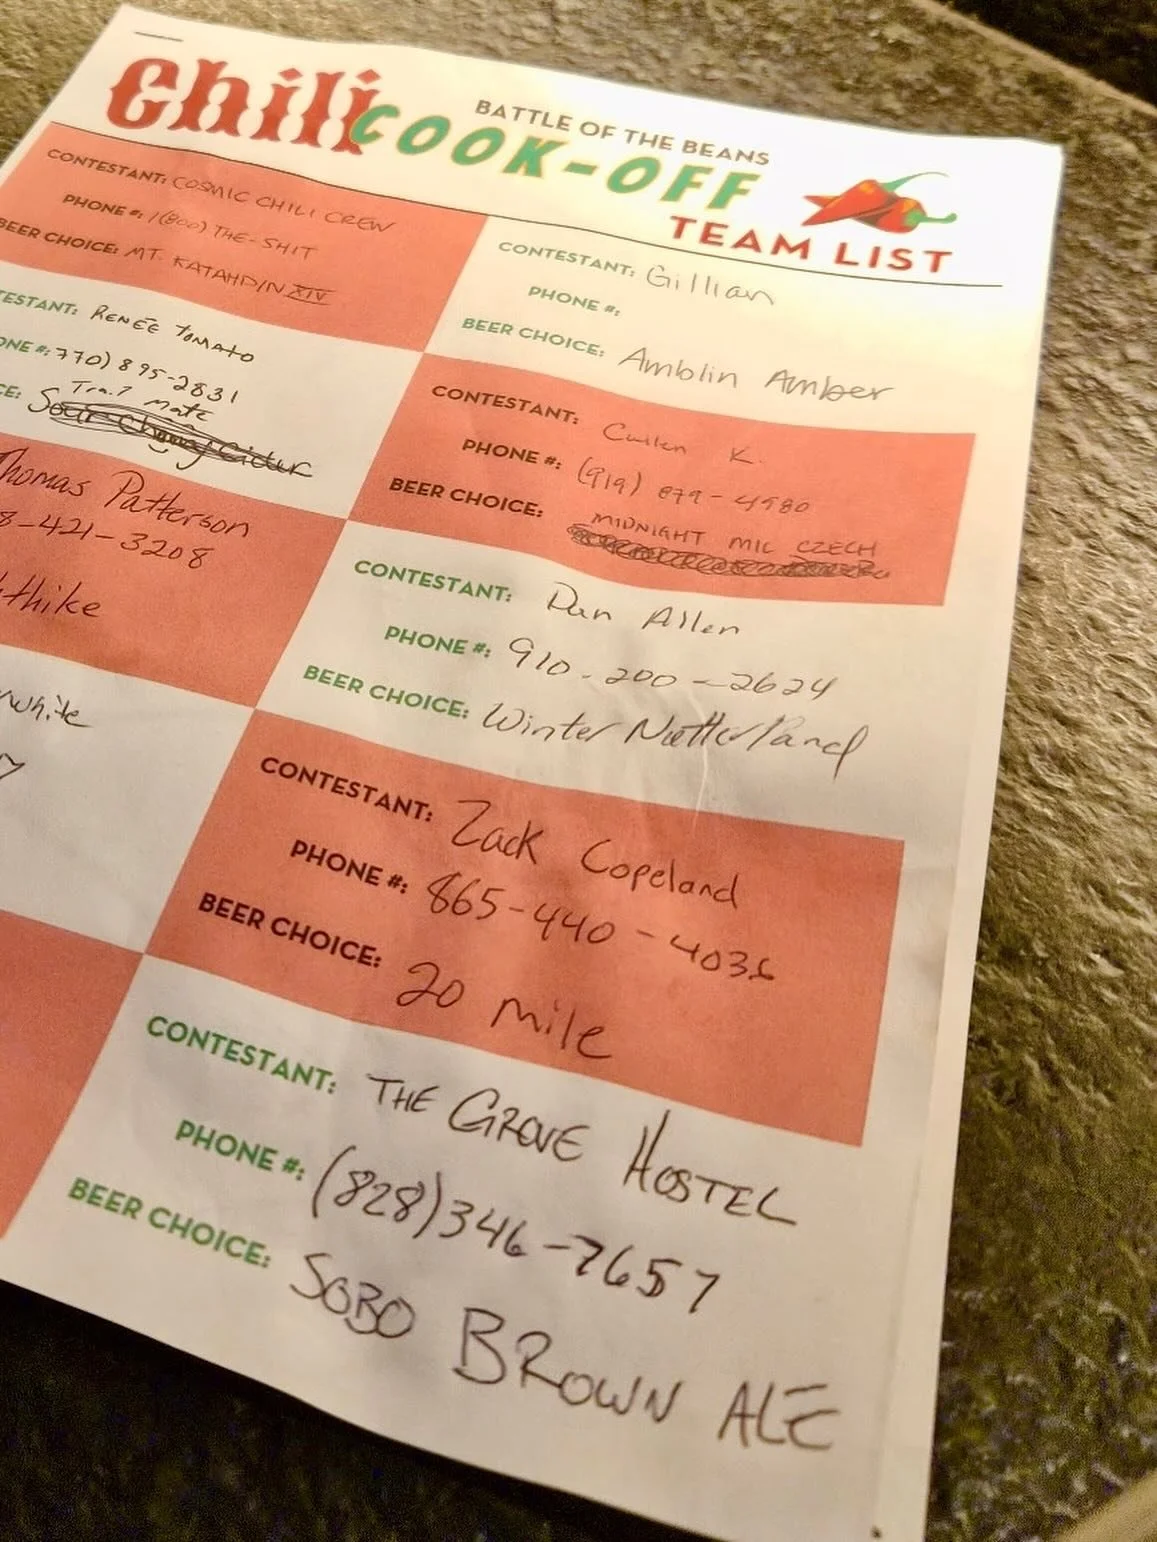 Chili COOK-OFF
BATTLE OF THE BEANS
TEAM LIST
CONTESTANT: COSMIC CHILI CREW
PHONE #: 1(800) THE-SHIT
BEER CHOICE: MT. KATAHDIN XIV
TESTANT: RENÉE TOMATO
ONE #: 770) 895-2831
Trail Mate
CE: Sour Cherry Cider
Thomas Patterson
8-421-3208
thike
white
CONTESTANT: Gillian
PHONE #:
BEER CHOICE: Amblin Amber
CONTESTANT: Cullen K.
PHONE #: (919) 879-4980
BEER CHOICE: MIDNIGHT MIC CZECH
CONTESTANT: Dan Allen
PHONE #: 910.200-2624
BEER CHOICE: Winter Nutterland
CONTESTANT: Zack Copeland
PHONE #: 865-440-4036
BEER CHOICE: 20 mile
CONTESTANT: THE GROVE HOSTEL
PHONE #: (828)346-7657
BEER CHOICE: SOBO BROWN ALE